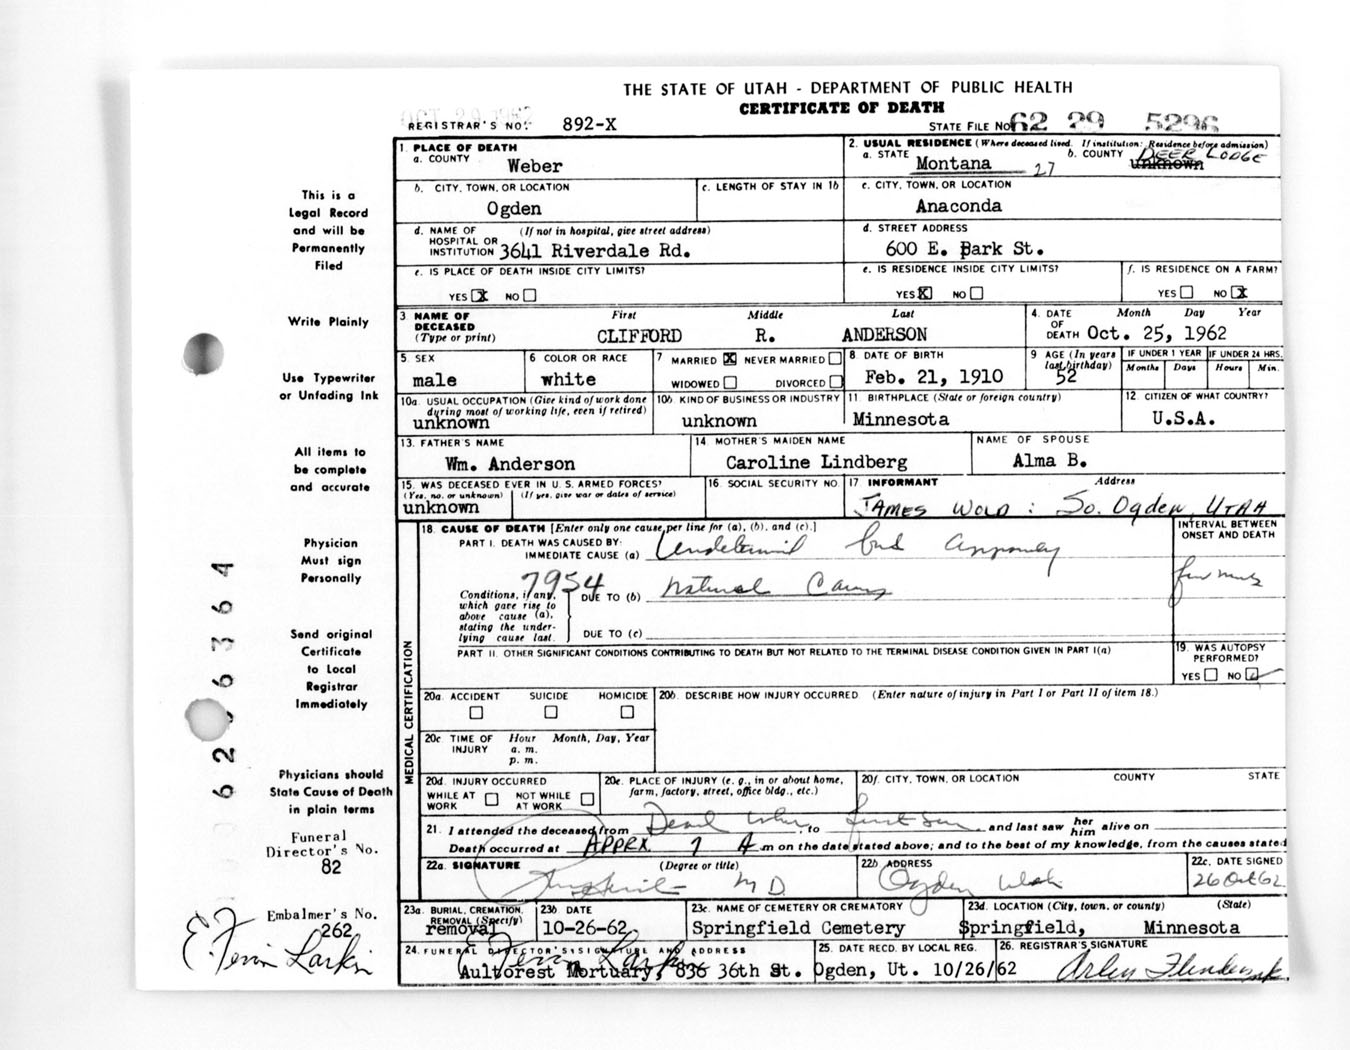 THE STATE OF UTAH - DEPARTMENT OF PUBLIC HEALTH
CERTIFICATE OF DEATH
REGISTRAR'S NO. 892-X
STATE FILE NO. 62 29 5296
1. PLACE OF DEATH
a. COUNTY
Weber
2. USUAL RESIDENCE (Where deceased lived. If institution: Residence before admission)
a. STATE Montana 27
b. COUNTY unknown DEER LODGE
b. CITY, TOWN, OR LOCATION
Ogden
c. LENGTH OF STAY IN 1b
c. CITY, TOWN, OR LOCATION
Anaconda
d. NAME OF HOSPITAL OR INSTITUTION (If not in hospital, give street address)
3641 Riverdale Rd.
d. STREET ADDRESS
600 E. Park St.
e. IS PLACE OF DEATH INSIDE CITY LIMITS?
YES X NO
e. IS RESIDENCE INSIDE CITY LIMITS?
YES X NO
f. IS RESIDENCE ON A FARM?
YES NO X
3 NAME OF DECEASED (Type or print)
First Middle Last
CLIFFORD R. ANDERSON
4. DATE OF DEATH
Month Day Year
Oct. 25, 1962
5. SEX
male
6 COLOR OR RACE
white
7 MARRIED X NEVER MARRIED
WIDOWED DIVORCED
8 DATE OF BIRTH
Feb. 21, 1910
9 AGE (In years last birthday)
52
IF UNDER 1 YEAR
Months Days
IF UNDER 24 HRS.
Hours Min.
10a. USUAL OCCUPATION (Give kind of work done during most of working life, even if retired)
unknown
10b KIND OF BUSINESS OR INDUSTRY
unknown
11. BIRTHPLACE (State or foreign country)
Minnesota
12 CITIZEN OF WHAT COUNTRY?
U.S.A.
13. FATHER'S NAME
Wm. Anderson
14 MOTHER'S MAIDEN NAME
Caroline Lindberg
NAME OF SPOUSE
Alma B.
15. WAS DECEASED EVER IN U. S. ARMED FORCES?
(Yes, no, or unknown) (If yes, give war or dates of service)
unknown
16. SOCIAL SECURITY NO.
17 INFORMANT Address
JAMES WOLD : So. Ogden, UTAH
18. CAUSE OF DEATH [Enter only one cause per line for (a), (b), and (c).]
INTERVAL BETWEEN ONSET AND DEATH
PART I. DEATH WAS CAUSED BY:
IMMEDIATE CAUSE (a)
7954
Conditions, if any, which gave rise to above cause (a), stating the underlying cause last.
DUE TO (b) natural Causes
DUE TO (c)
PART II. OTHER SIGNIFICANT CONDITIONS CONTRIBUTING TO DEATH BUT NOT RELATED TO THE TERMINAL DISEASE CONDITION GIVEN IN PART I(a)
19. WAS AUTOPSY PERFORMED?
YES NO
MEDICAL CERTIFICATION
20a. ACCIDENT SUICIDE HOMICIDE
20b. DESCRIBE HOW INJURY OCCURRED (Enter nature of injury in Part I or Part II of item 18.)
20c TIME OF INJURY Hour Month, Day, Year
a. m.
p. m.
20d. INJURY OCCURRED
WHILE AT WORK NOT WHILE AT WORK
20e. PLACE OF INJURY (e. g., in or about home, farm, factory, street, office bldg., etc.)
20f. CITY, TOWN, OR LOCATION COUNTY STATE
21. I attended the deceased from Dead when, to first seen and last saw her him alive on
Death occurred at APPRX 7 A m on the date stated above; and to the best of my knowledge, from the causes stated
22a. SIGNATURE (Degree or title)
M D.
22b ADDRESS
Ogden Utah
22c. DATE SIGNED
26 Oct 62
23a. BURIAL, CREMATION, REMOVAL (Specify)
removal
23b DATE
10-26-62
23c. NAME OF CEMETERY OR CREMATORY
Springfield Cemetery
23d. LOCATION (City, town, or county) (State)
Springfield, Minnesota
24. FUNERAL DIRECTOR'S SIGNATURE AND ADDRESS
E. Fenin Larkin
Aultorest Mortuary, 836 36th St. Ogden, Ut.
25. DATE RECD. BY LOCAL REG.
10/26/62
26. REGISTRAR'S SIGNATURE
This is a
Legal Record
and will be
Permanently
Filed
Write Plainly
Use Typewriter
or Unfading Ink
All items to
be complete
and accurate
Physician
Must sign
Personally
Send original
Certificate
to Local
Registrar
Immediately
Physicians should
State Cause of Death
in plain terms
Funeral
Director's No.
82
Embalmer's No.
262